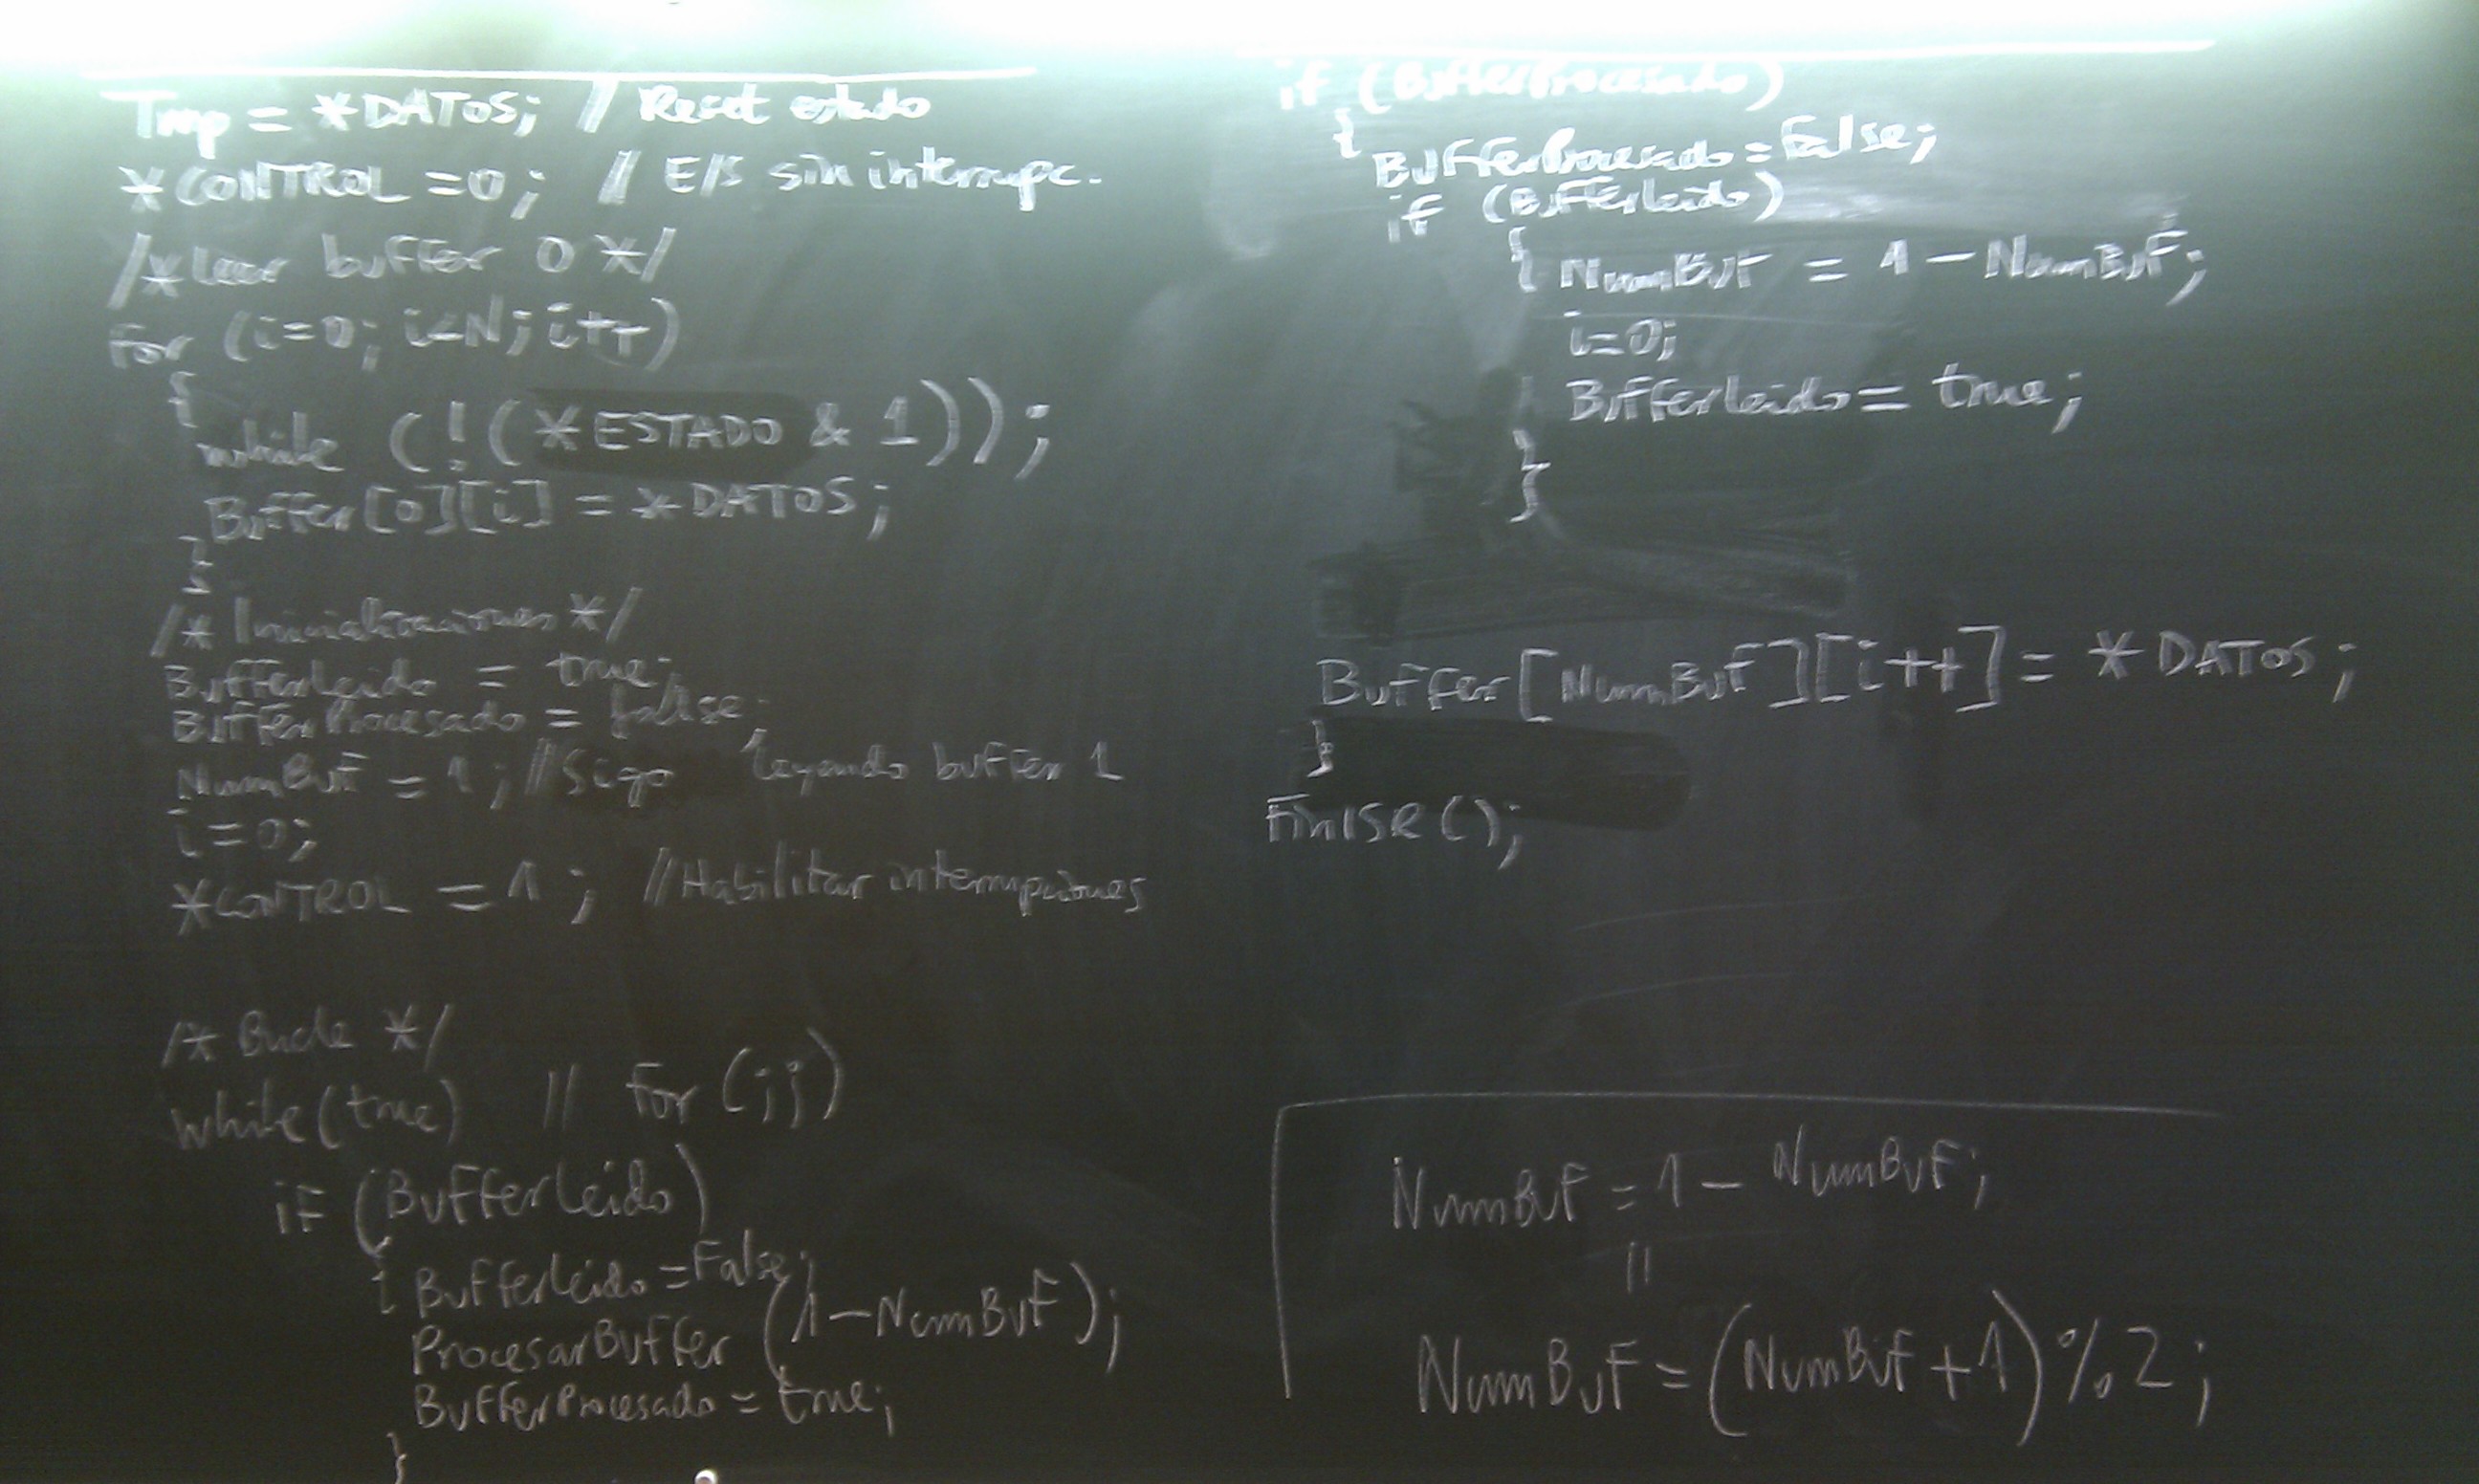 Tmp = *DATOS; // Reset estado
*CONTROL = 0; // E/S sin interrupc.
/*leer buffer 0 */
for (i=0; i<N; i++)
{
while (!(*ESTADO & 1));
Buffer[0][i] = *DATOS;
}
/* Inicializaciones */
BufferLeido = true;
BufferProcesado = false;
NumBuf = 1; // Sigo leyendo buffer 1
i=0;
*CONTROL = 1; // Habilitar interrupciones
/* Bucle */
while(true) // for (;;)
if (BufferLeido)
{ BufferLeido = False;
ProcesarBuffer (1-NumBuf);
BufferProcesado = true;
}
if (BufferProcesado)
{
BufferProcesado = False;
if (BufferLeido)
{ NumBuf = 1 - NumBuf;
i=0;
BufferLeido = true;
}
Buffer[NumBuf][i++] = *DATOS;
}
FinISR();
NumBuf = 1 - NumBuf;
||
NumBuf = (NumBuf + 1) % 2;